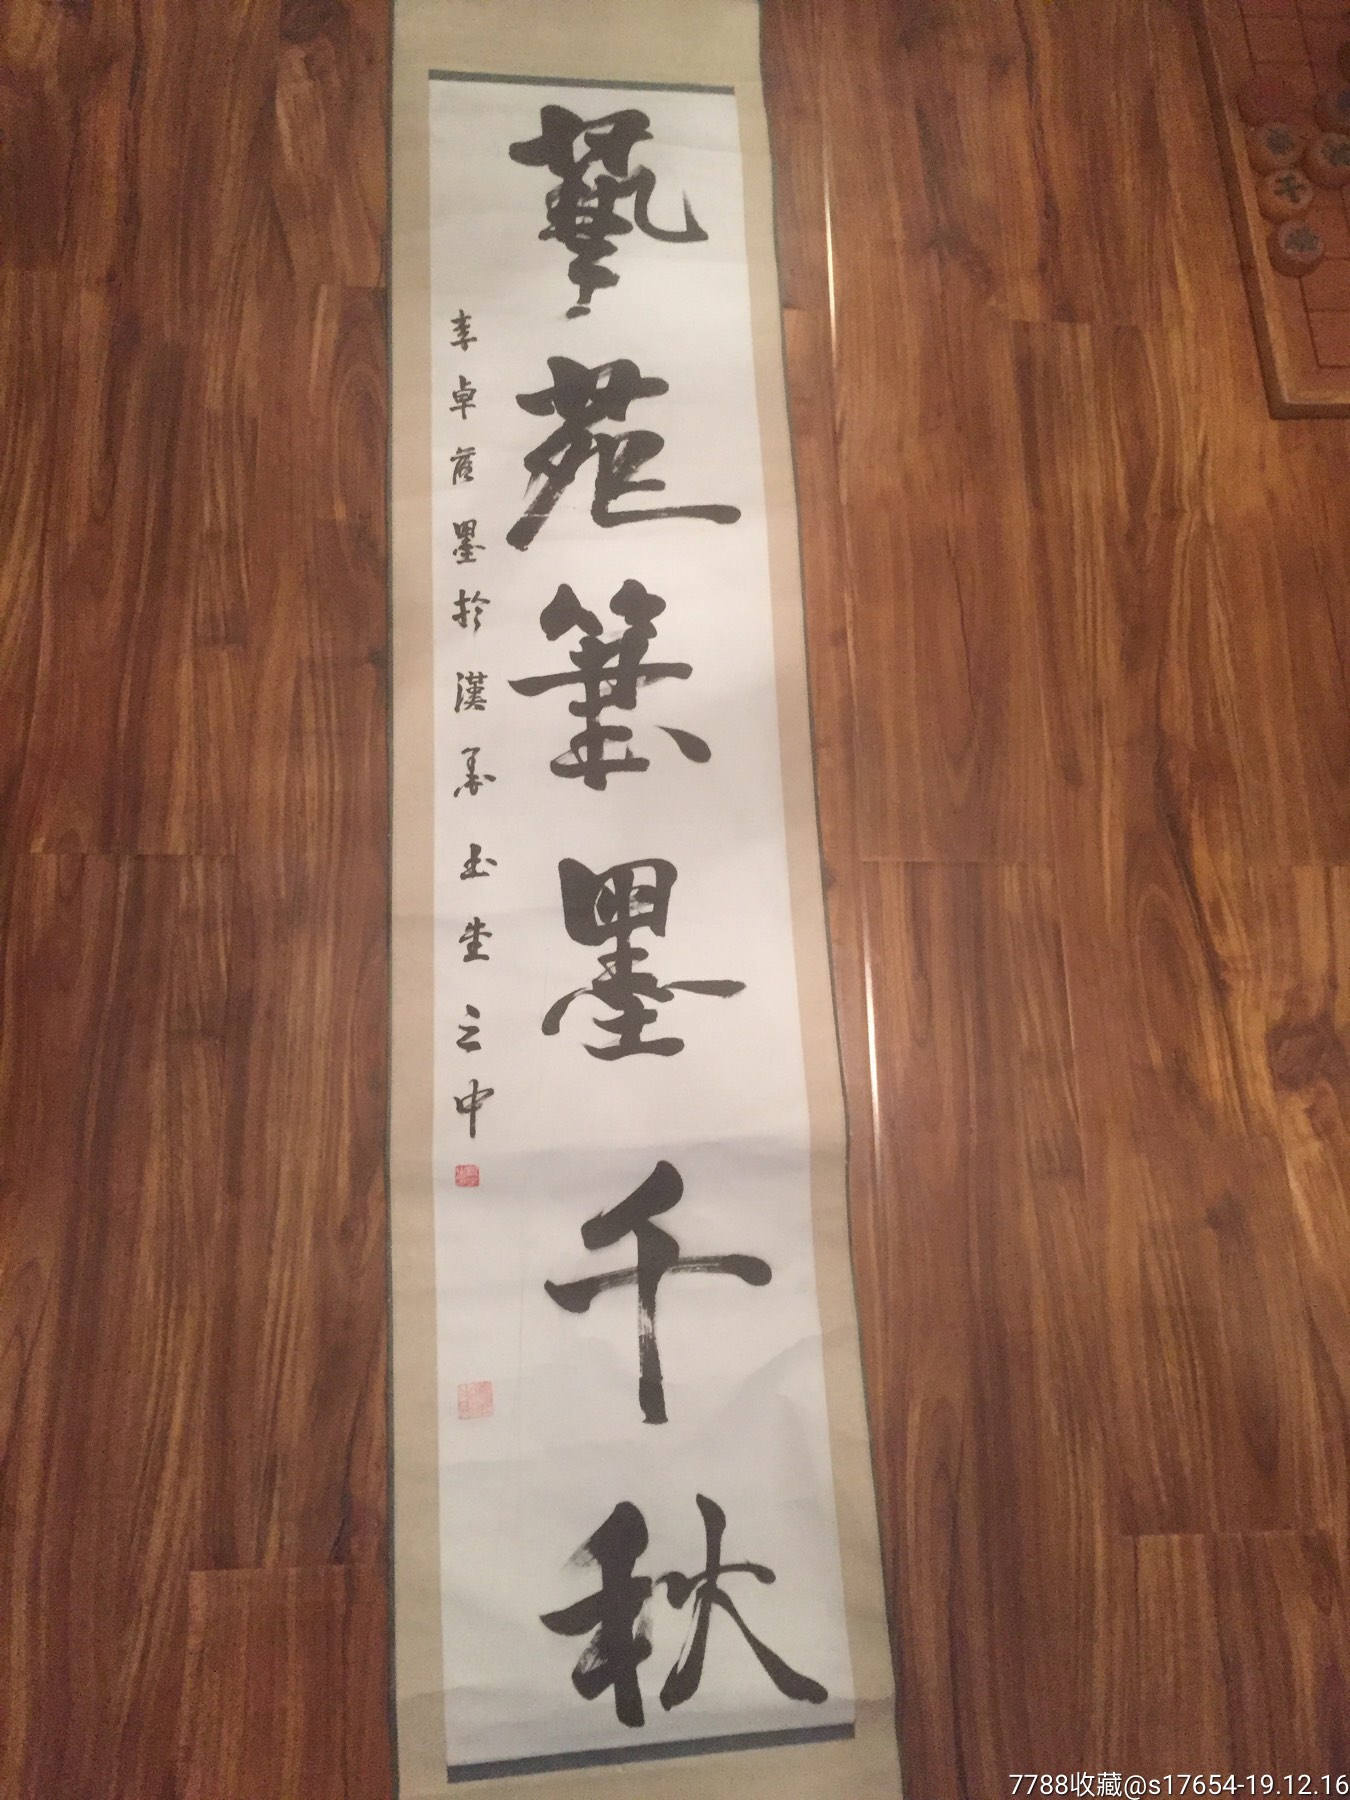 藝苑筆墨千秋
李卓墨於漢玉堂之中
7788收藏@s17654-19.12.16